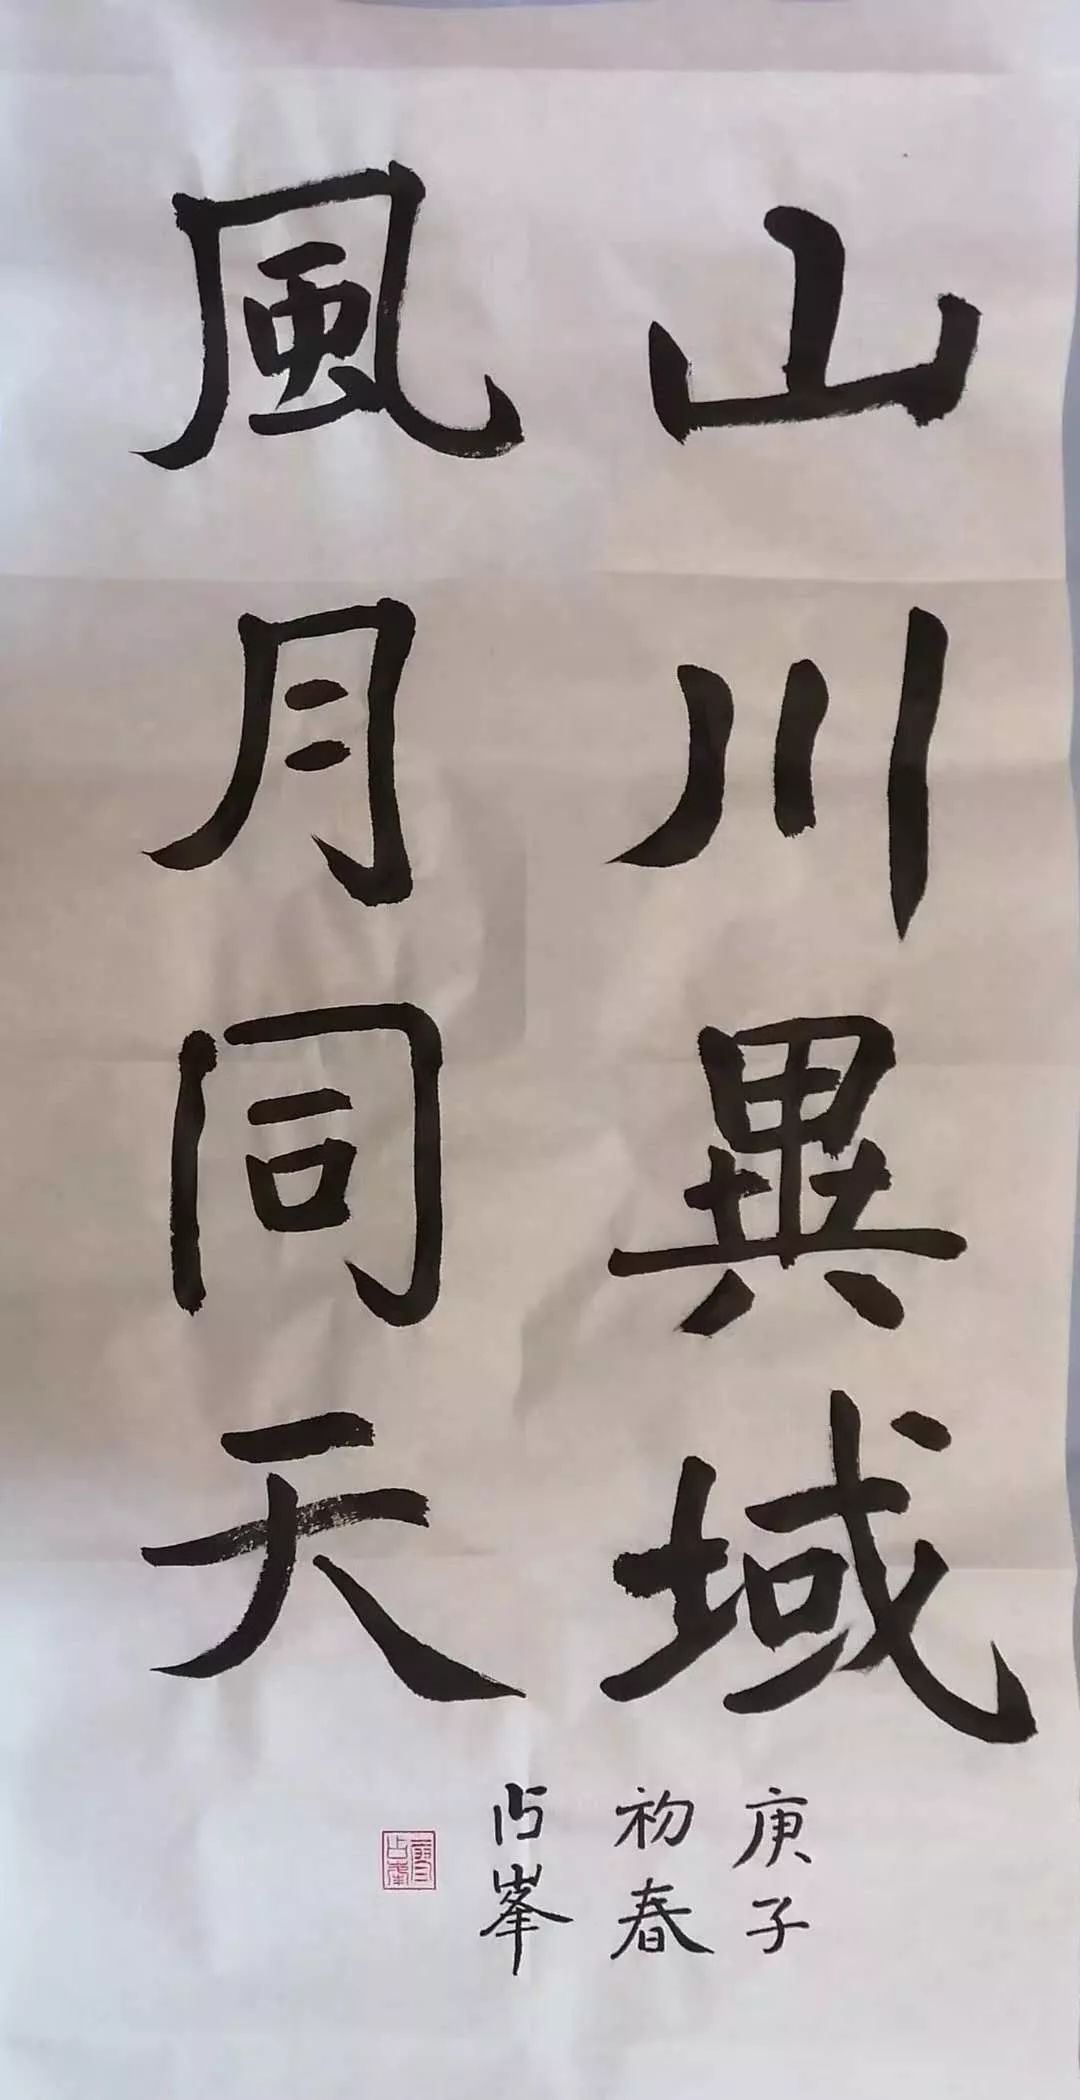 山川異域
風月同天
庚子
初春
占峯